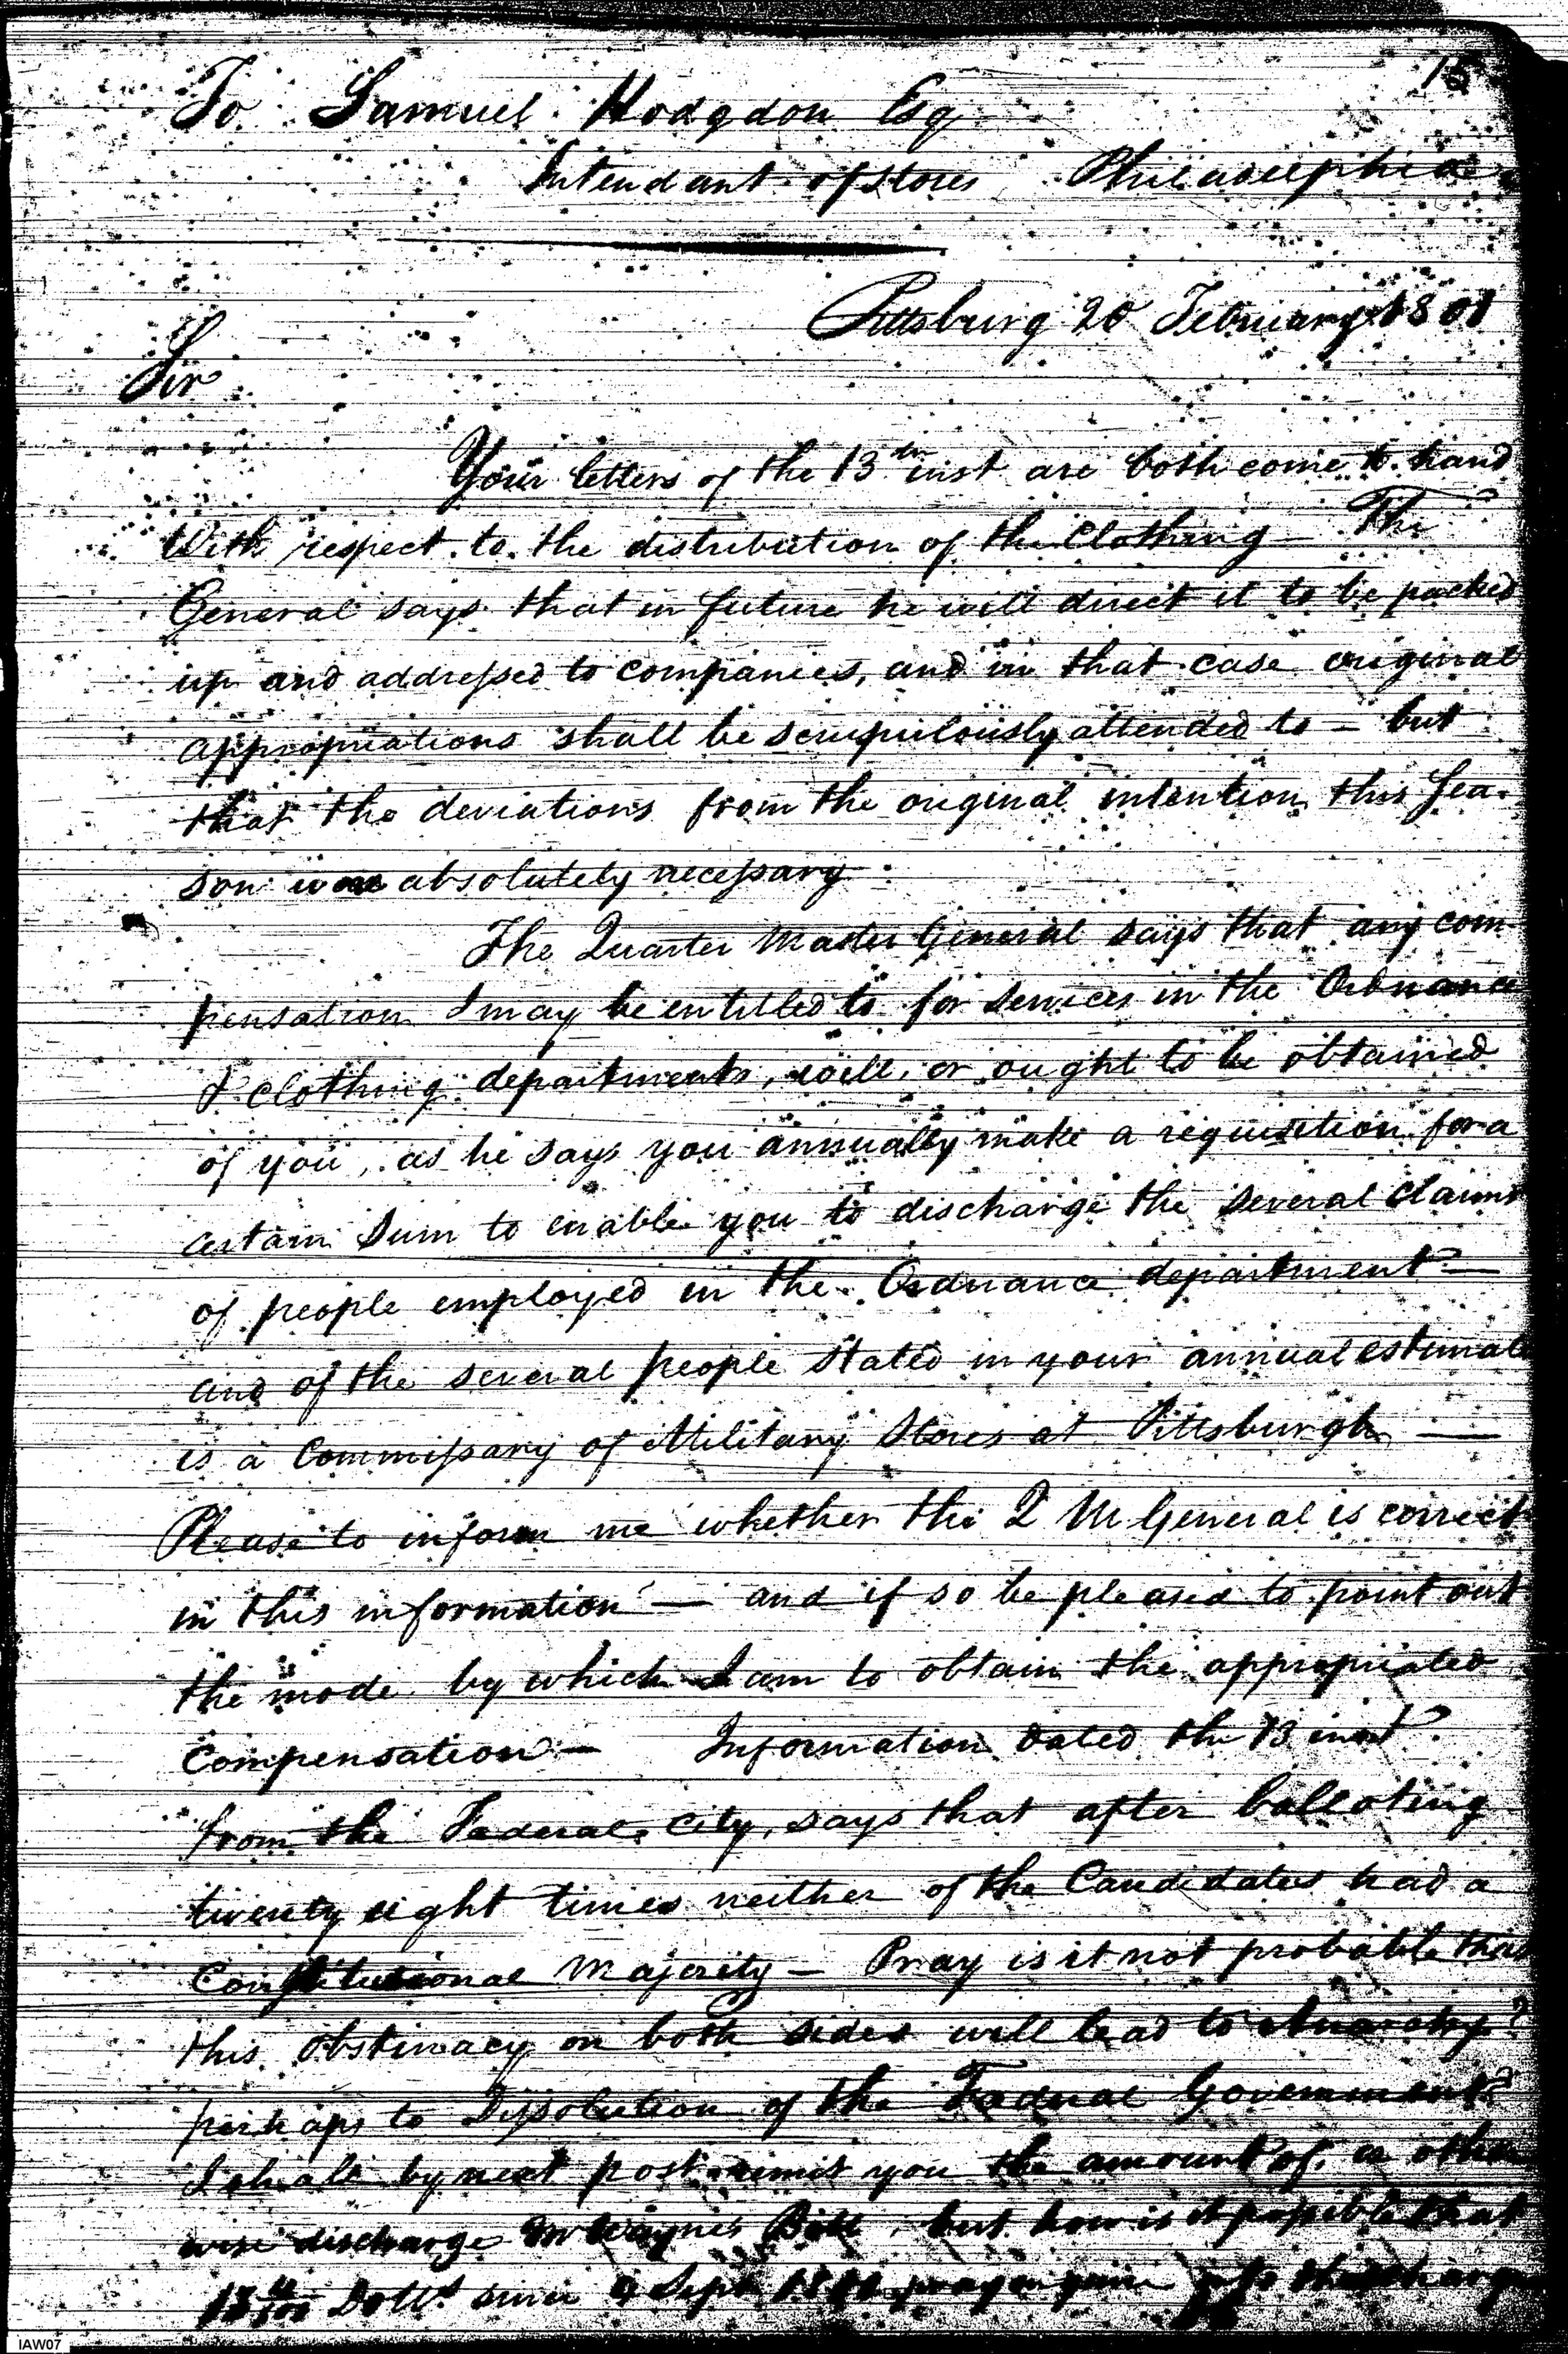 15
To Samuel Hodgdon Esq
Intendant of Stores Philadelphia
Pittsburg 20 February 1801
Sir
Your letters of the 13th inst are both come to hand
With respect to the distribution of the Clothing — The
General says that in future he will direct it to be packed
up and addressed to Companies, and in that case original
appropriations shall be scrupulously attended to — but
that the deviations from the original intention this Sea-
son was absolutely necessary
The Quarter Master General says that any com-
pensation I may be entitled to for services in the Ordnance
& Clothing departments, will, or ought to be obtained
of you, as he says you annually make a requisition for a
certain Sum to enable you to discharge the several Claims
of people employed in the Ordnance department —
and of the several people stated in your annual estimate
is a Commissary of Military Stores at Pittsburgh —
Please to inform me whether the Q M General is correct
in this information — and if so be pleased to point out
the mode by which I am to obtain the appropriated
Compensation — Information dated the 13 inst
from the Federal City, says that after balloting
twenty eight times neither of the Candidates had a
Constitutional Majority — Pray is it not probable that
this obstinacy on both sides will lead to Anarchy?
perhaps to Dissolution of the Federal Government?
I shall by next post remit you the amount of, or other
wise discharge Mr Wayne's Bill, but how is it possible that
Dolls since 9 Sept pray enquire into the charge